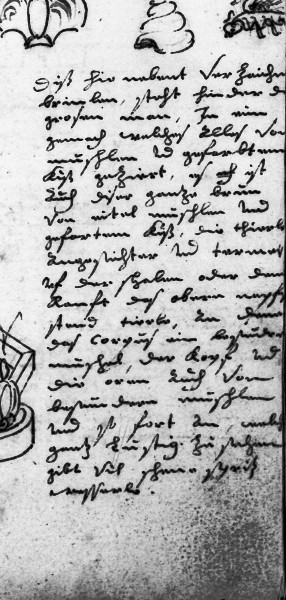 Diss hie nebent verzeichn
brünlen, steht hinder de
grosen man, In ein
gemach welches Alles von
muschlen vd gefarbtem
Kiß geziert, es ist
Auch diser gantze brun
von eitel muschlen vnd
gefarbtem Kiß, die thierle
Angesichter vd
vf der schalen oder dem
Ranfft des obern
stend thierle, An dem
das Corpus ein besunder
muschel, der Kopf vd
die oren Auch von
besundern muschlen
vnd ist fort An, welch
gantz Lustig Zu sehen
gibt vil schener spritz
wasserle.